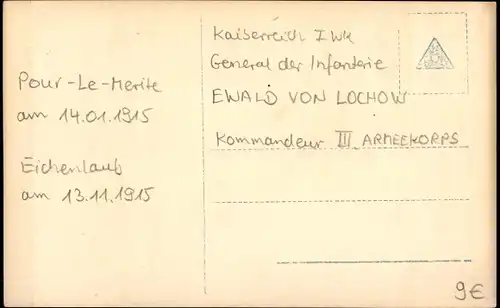 Pour-Le-Merite
am 14.01.1915
Eichenlaub
am 13.11.1915
Kaiserreich I WK
General der Infanterie
EWALD VON LOCHOW
Kommandeur III ARMEEKORPS
9€